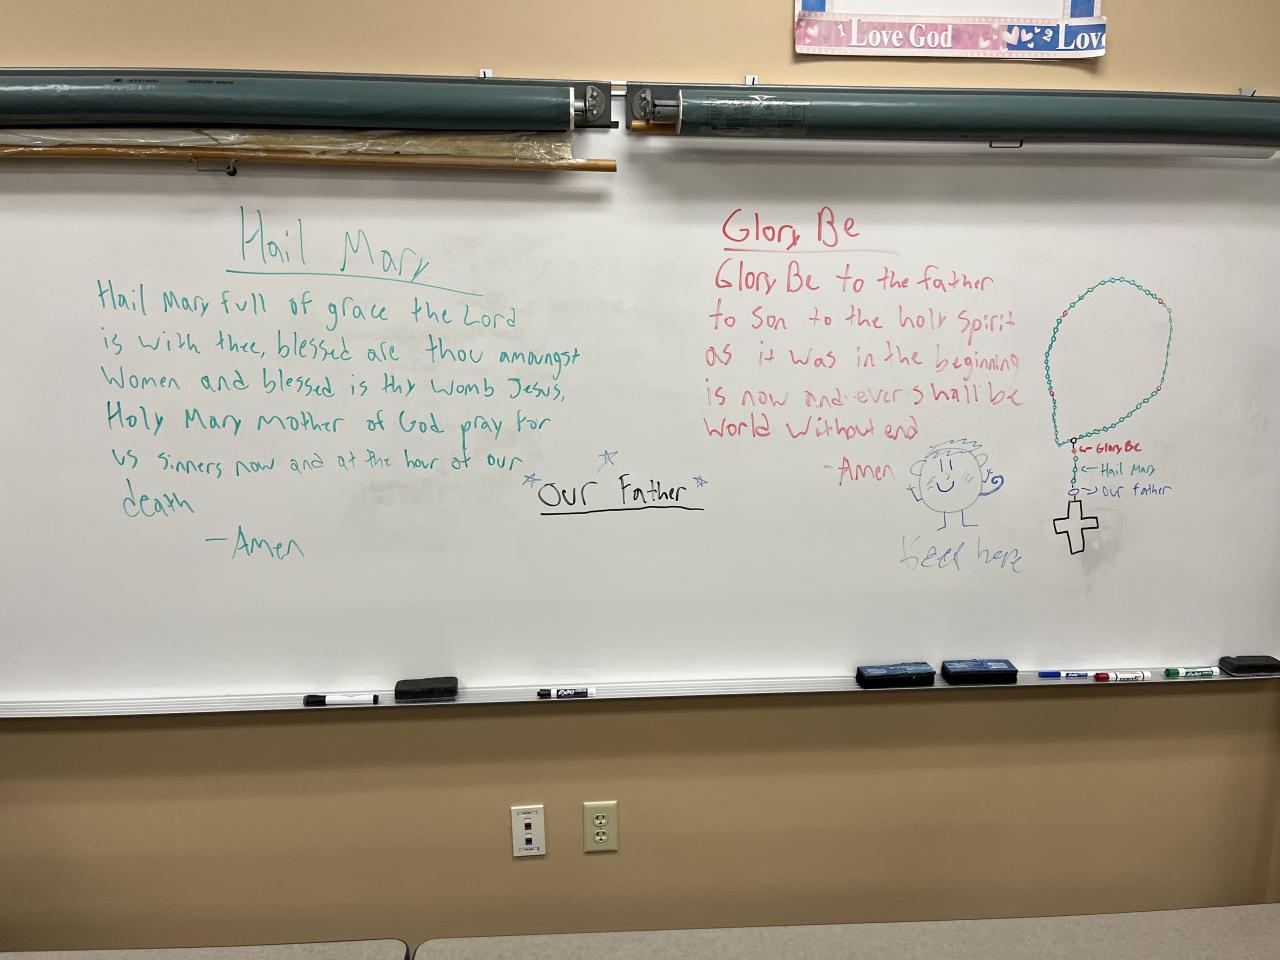 1 Love God
2 Love
Hail Mary
Hail Mary full of grace the Lord
is with thee, blessed are thou amoungst
Women and blessed is thy womb Jesus,
Holy Mary mother of God pray for
us sinners now and at the hour of our
death
- Amen
Our Father
Glory Be
Glory Be to the father
to son to the holy spirit
as it was in the beginning
is now and ever shall be
world without end
- Amen
Keep here
Glory Be
Hail Mary
our father
EXPO